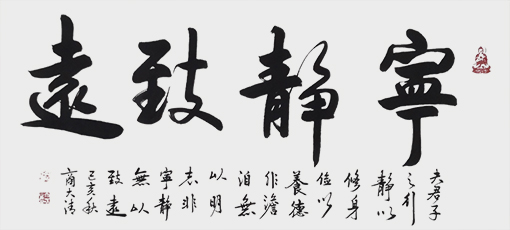 寧靜致遠
夫君子
之行
靜以
修身
儉以
養德
非澹
泊無
以明
志非
寧靜
無以
致遠
己亥秋
商大